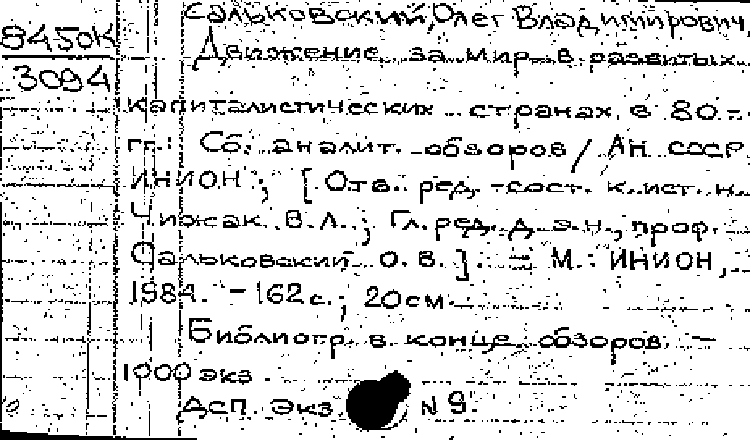 8450К
3094
Сальковский, Олег Владимирович,
Движение за мир в развитых
капиталистических странах в 80-
гг.: Сб. аналит. обзоров / АН СССР
ИНИОН; [Отв. ред.-сост. к.ист.н.
Чижак В.Л.; Гл. ред. д.э.н., проф.
Сальковский О.В.]. - М.: ИНИОН,
1984. - 162с.; 20см.
Библиогр. в конце обзоров. -
1000 экз.
ДСП. Экз. N 9.